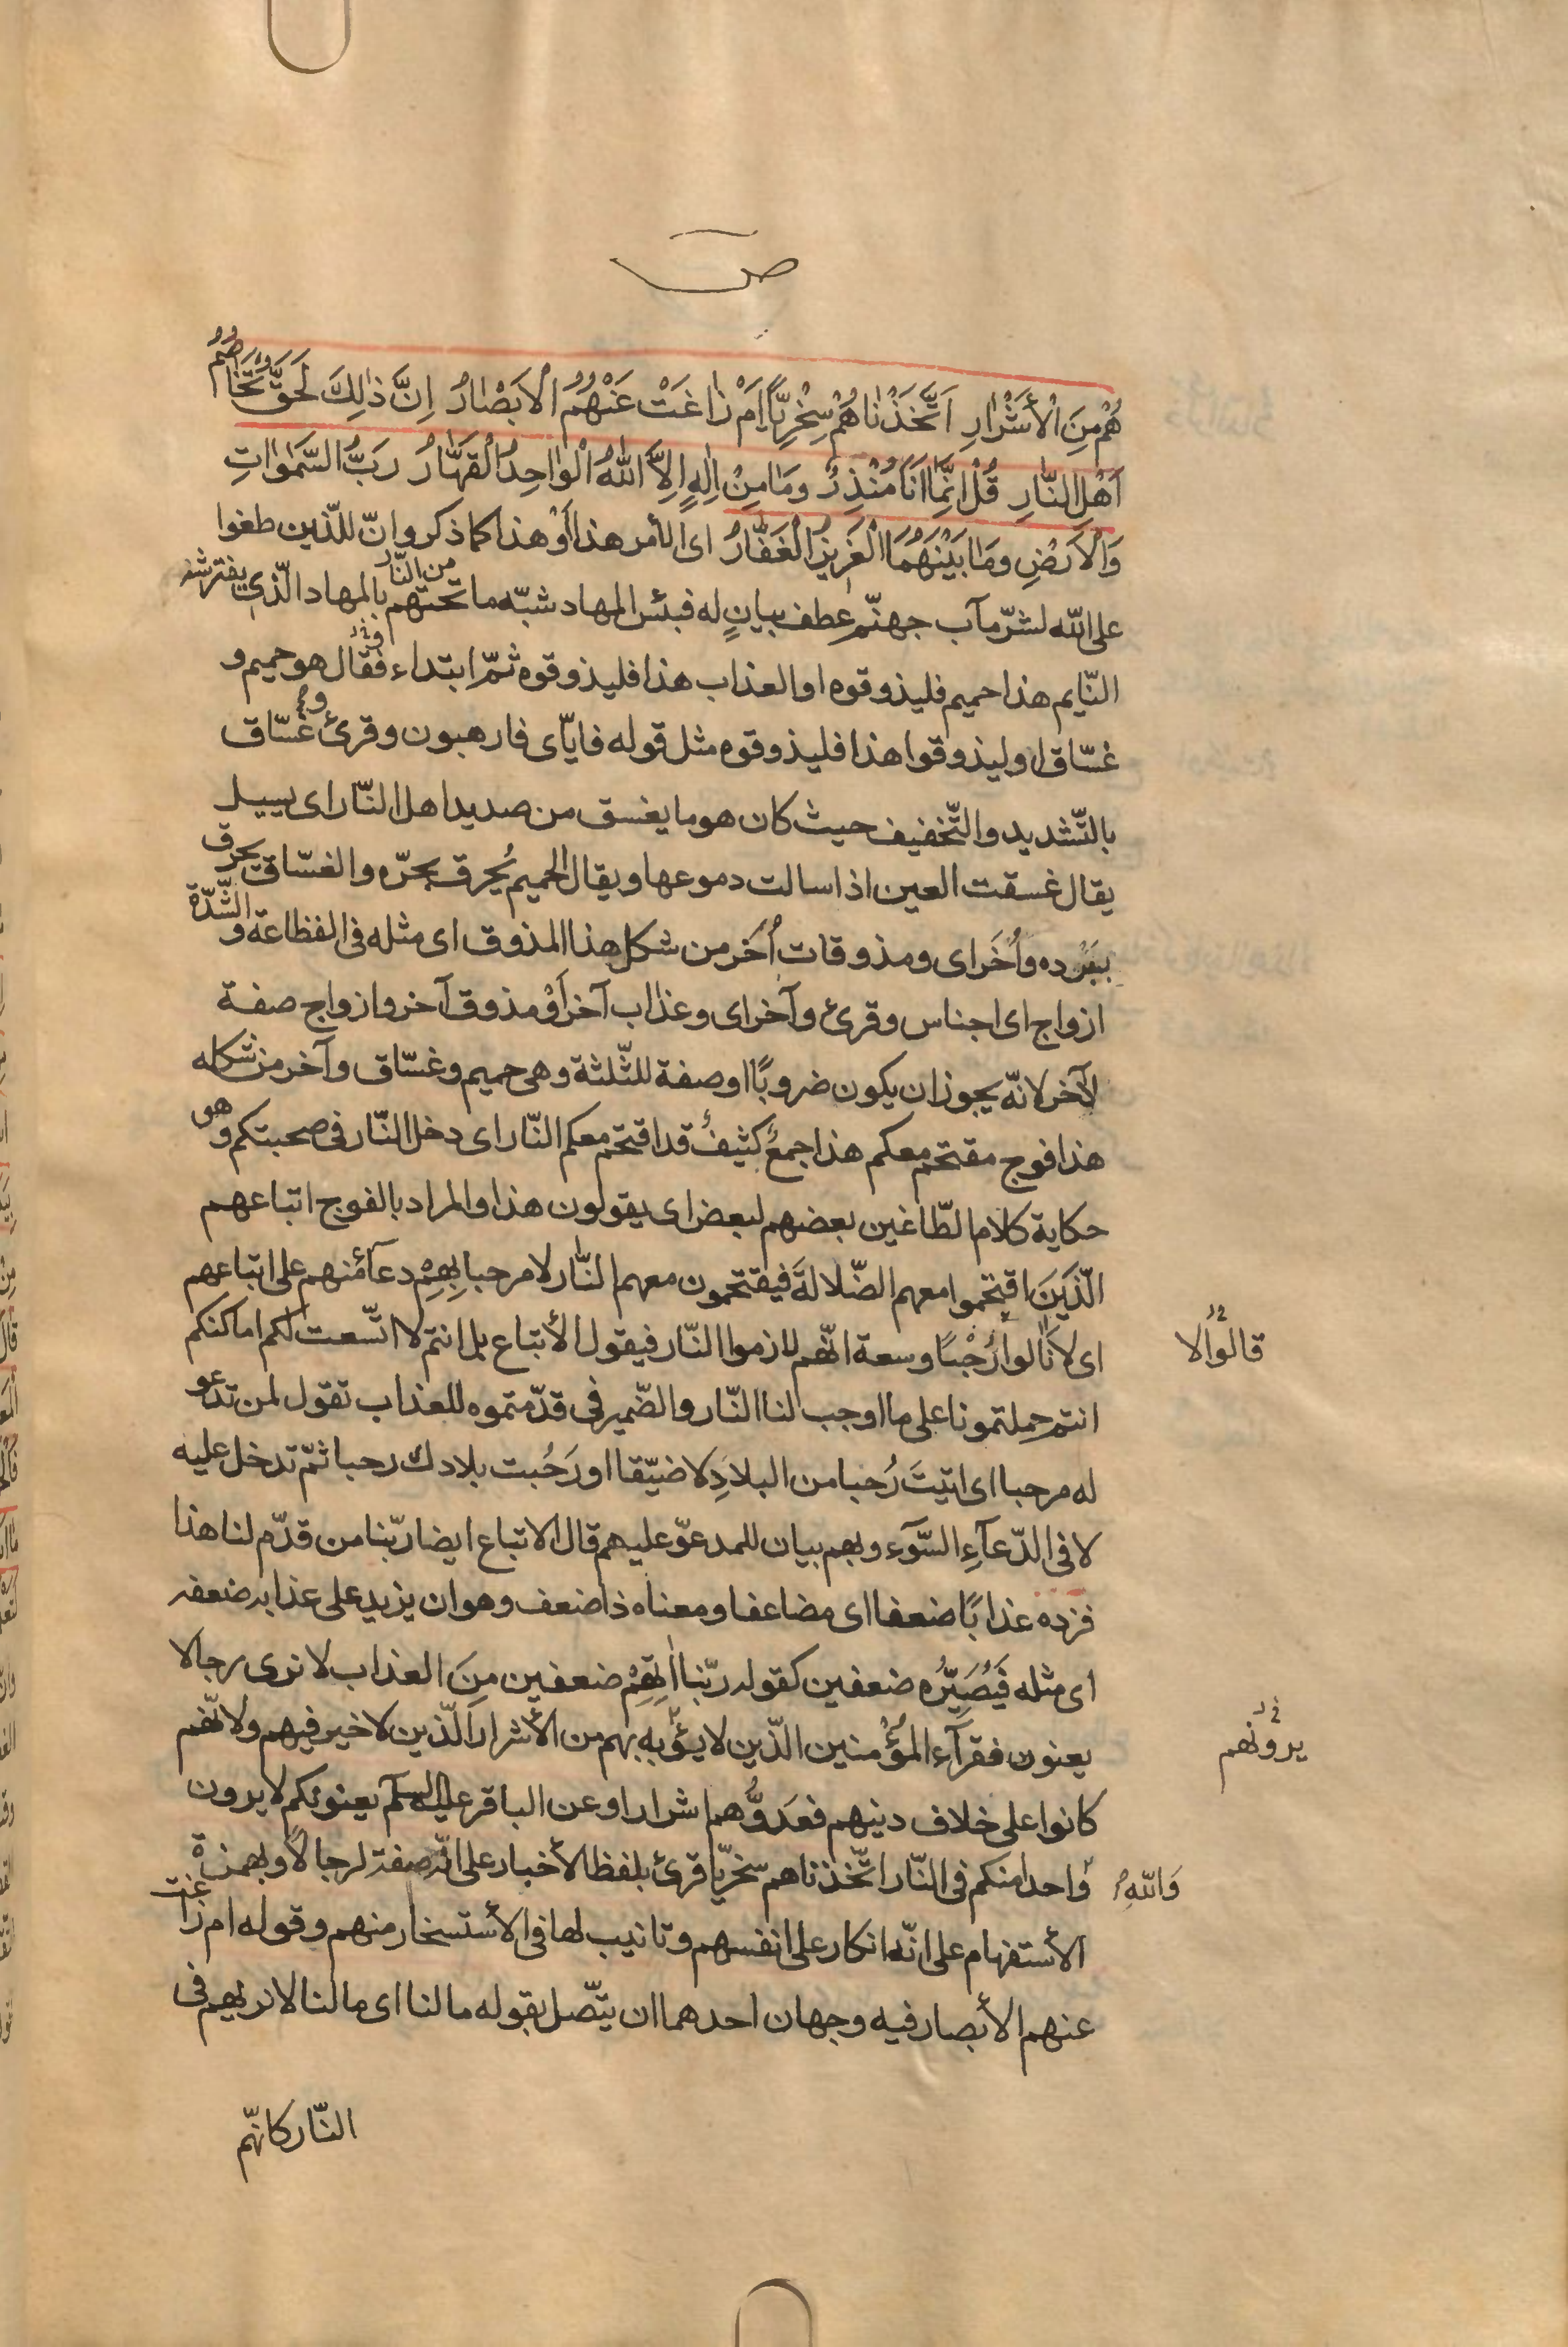 ص
هُمْ مِنَ الْأَشْرَارِ اَتَّخَذْنَاهُمْ سِخْرِيًّا اَمْ زَاغَتْ عَنْهُمُ الْاَبْصَارُ اِنَّ ذٰلِكَ لَحَقٌّ تَخَاصُمُ
اَهْلِ النَّارِ قُلْ اِنَّمَا اَنَا مُنْذِرٌ وَمَا مِنْ اِلٰهٍ اِلَّا اللّٰهُ الْوَاحِدُ الْقَهَّارُ رَبُّ السَّمٰوَاتِ
وَالْاَرْضِ وَمَا بَيْنَهُمَا الْعَزِيزُ الْغَفَّارُ اى الأمر هذا أَوْ هذا كما ذكر وانّ للّذين طغوا
على الله لشرّ مآب جهنّم عطف بيانٍ له فبئس المهاد شبّه ما تحتهم من النّار بالمهاد الّذى يفترشه
النّايم هذا حميم فليذوقوه او العذاب هذا فليذوقوه ثمّ ابتداء فقال هو حميم و
غسّاق او ليذوقوا هذا فليذوقوه مثل قوله فايّاى فارهبون وقرئ غسّاق
بالتّشديد والتّخفيف حيث كان هو ما يغسق من صديد اهل النّار اى يسيل
يقال غسقت العين اذا سالت دموعها ويقال الحميم يُحرق بحرّه والغسّاق يحرق
ببَرْده وأُخَر اى ومذوقات أُخَر من شكل هذا المذوق اى مثله فى الفظاعة والشّدّة
ازواج اى اجناس وقرئ وآخر اى وعذاب آخر أَوْ مذوق آخر وازواج صفة
لآخر لانّه يجوز ان يكون ضروبًا او صفة للثّلثة وهى حميم وغسّاق وآخر من شكله
هذا فوج مقتحم معكم هذا جمعٌ كثيفٌ قد اقتحم معكم النّار اى دخل النّار فى صحبتكم وهى
حكاية كلام الطّاغين بعضهم لبعض اى يقولون هذا والمراد بالفوج اتباعهم
الّذَينَ اقتحموا معهم الضّلالةَ فيقتحمون معهم النّار لا مرحبا بِهِمْ دعآء منهم على اتباعهم
اى لا نالوا رُحْبًا وسعة انّهم لازموا النّار فيقول الأتباع بل انتم لا اتّسعت لكم اماكنكم
قالوا لا
انتم حملتمونا على ما اوجب لنا النّار والضّمير فى قدّمتموه للعذاب تقول لمن تدعو
له مرحبا اى اتيتَ رُحبا من البلادِ لا ضيّقا او رَحُبت بلادك رحبا ثمّ تدخل عليه
لا فى الدّعآءِ السَّوَء وبهم بيان للمدعوّ عليهم قال الاتباع ايضا ربّنا من قدّم لنا هذا
فزده عذابًا ضعفا اى مضاعفا ومعناه ذا ضعف وهو ان يزيد على عذابه ضعفه
اى مثله فَيُصَيِّرُه ضعفين كقوله ربّنا اٰتِهِمْ ضعفين مِنَ العذاب لا نرى رجالا
يعنون فقرآء المؤمنين الّذين لا يؤبه بهم من الأشرار الّذين لا خير فيهم ولانّهم
يرونهم
كانوا على خلاف دينهم فعَدوُّهم اشرارا وعن الباقر عليه السلم يعنونكم لا يرون
واحدا منكم فى النّار اتّخذناهم سخريّا قرئ بلفظ الأخبار على انّه صفة لرجالًا وبهمزة
وَاللهِ
الأستفهام على انّه انكار على انفسهم وتانيب لها فى الأستسخار منهم وقوله ام زاغت
عنهم الأبصار فيه وجهان احدهما ان يتّصل بقوله ما لنا اى ما لنا لا نريهم فى
النّار كانّهم